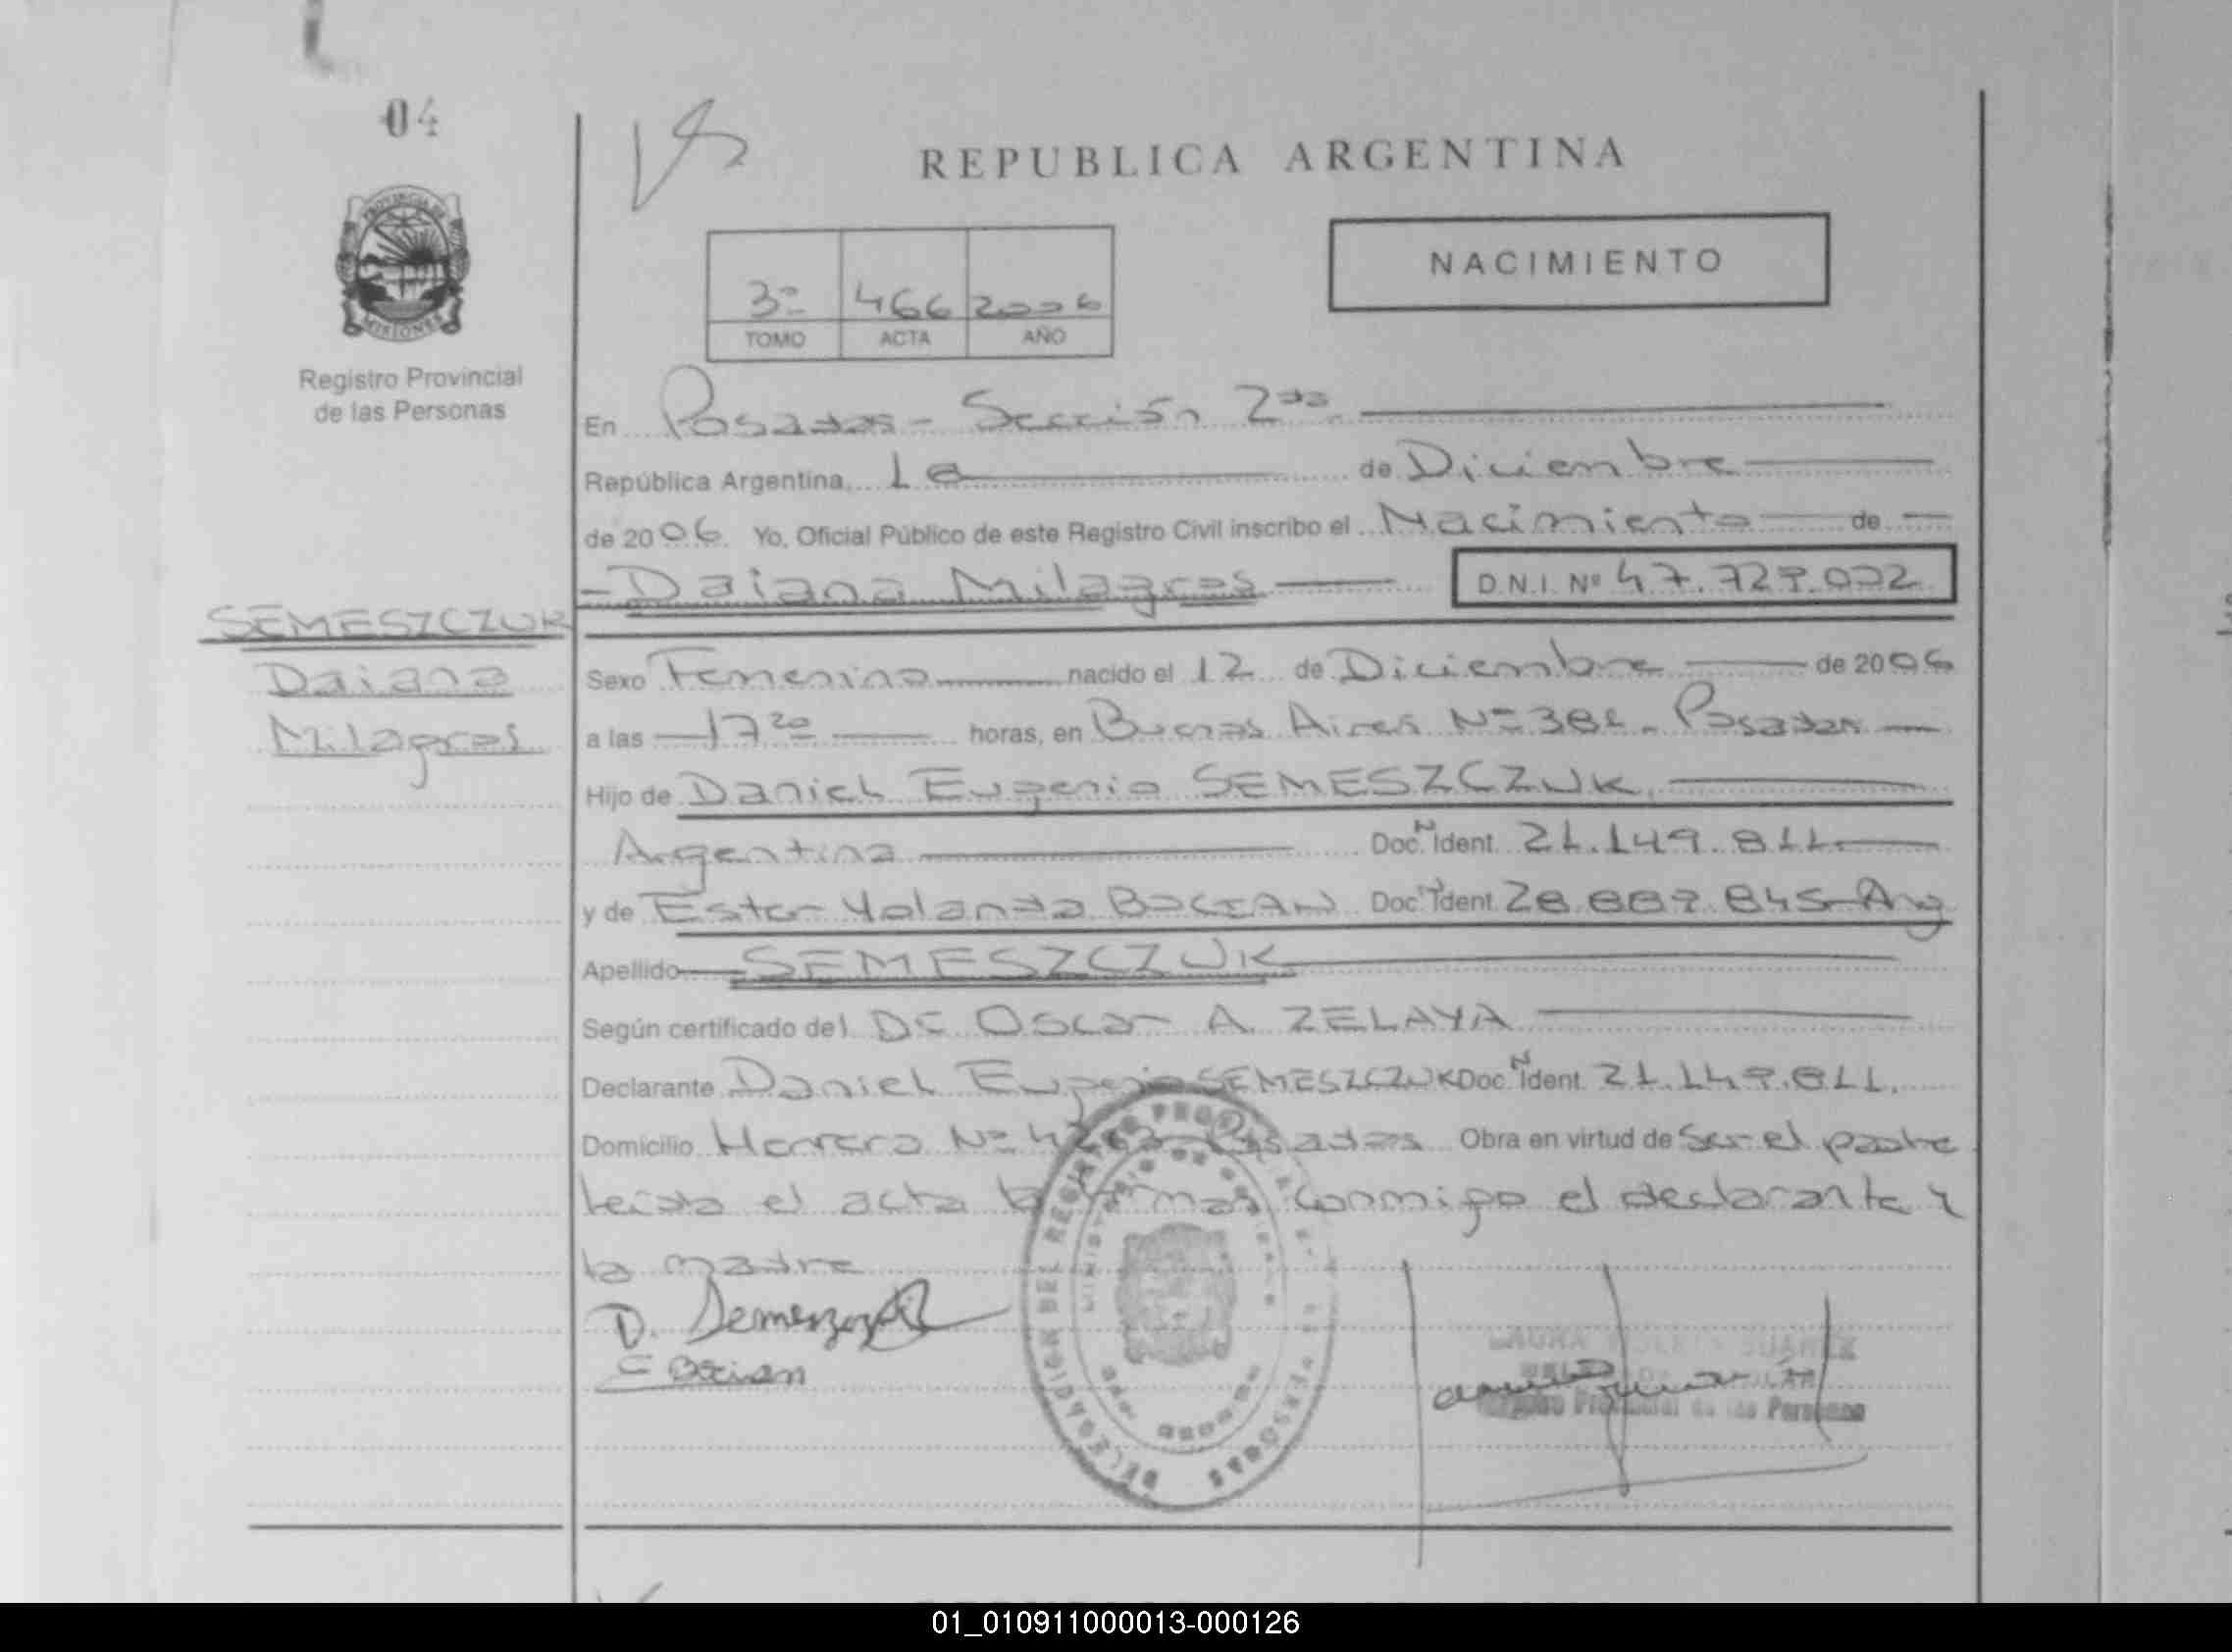 04
REPUBLICA ARGENTINA
PROVINCIA DE
MISIONES
Registro Provincial
de las Personas
NACIMIENTO
3º 466 2006
TOMO ACTA AÑO
En Posadas - Sección 2da
República Argentina, de Diciembre
de 2006 Yo, Oficial Público de este Registro Civil inscribo el Nacimiento de
Daiana Milagros D.N.I. Nº
SEMESZCZUK
Daiana
Milagros
Sexo Femenino nacido el 12 de Diciembre de 2006
a las 17 20 horas, en Buenos Aires Nº Posadas
Hijo de Daniel Eugenio SEMESZCZUK
Argentina Doc. Ident. 21.149.811
y de Ester Yolanda BOCIAN Doc. Ident. Arg
Apellido SEMESZCZUK
Según certificado del Dr Oscar A. ZELAYA
Declarante Daniel Eugenio SEMESZCZUK Doc. Ident. 21.149.811.
Domicilio Herrera Nº Posadas Obra en virtud de Ser el padre
leida el acta la firman conmigo el declarante y
la madre
D.
E Bocian
DEL REGISTRO
PERSONAS
LAURA SUAREZ
Provincial de las Personas
01_010911000013-000126